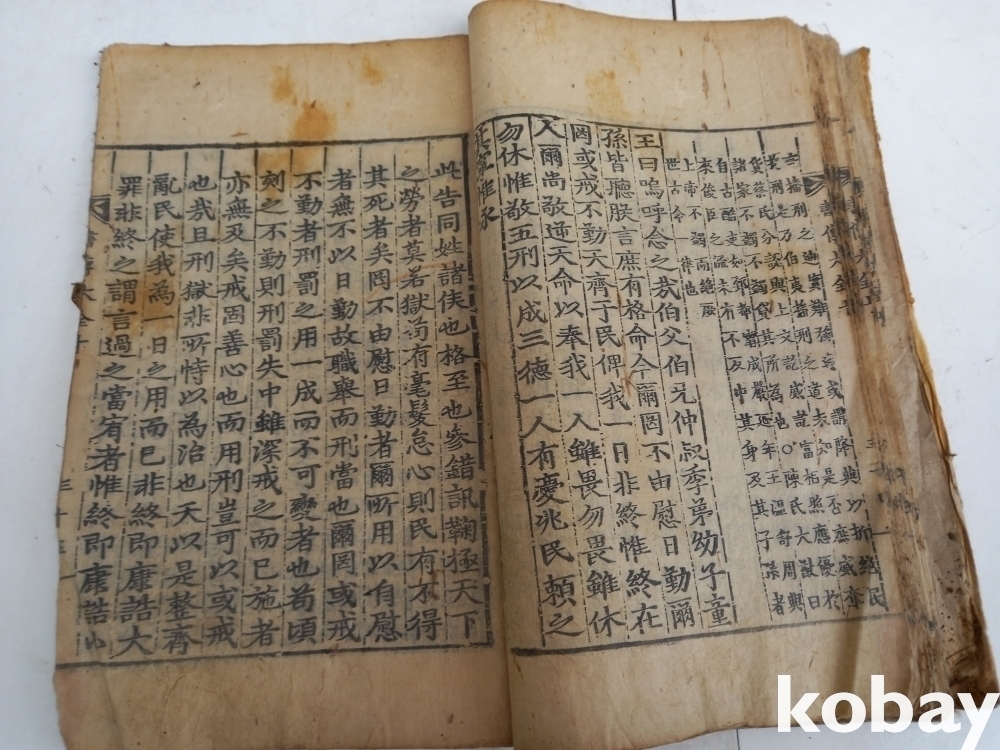 書傳大全
自古酷吏如郅都
不反中其身及其子孫者
來俊臣之流未有
上帝不蠲而絶厥
世古今一律也
王曰嗚呼念之哉伯父伯兄仲叔季弟幼子童
孫皆聽朕言庶有格命今爾罔不由慰日勤爾
罔或戒不勤天齊于民俾我一日非終惟終在
人爾尚敬逆天命以奉我一人雖畏勿畏雖休
勿休惟敬五刑以成三德一人有慶兆民賴之
其寧惟永
此告同姓諸侯也格至也參錯訊鞫極天下
之勞者莫若獄苟有毫髮怠心則民有不得
其死者矣罔不由慰日勤者爾所用以自慰
者無不以日勤故職舉而刑當也爾罔或戒
不勤者刑罰之用一成而不可變者也苟頃
刻之不勤則刑罰失中雖深戒之而已施者
亦無及矣戒固善心也而用刑豈可以或戒
也哉且刑獄非所恃以為治也天以是整齊
亂民使我為一日之用而已非終即康誥大
罪非終之謂言過之當宥者惟終即康誥小
kobay